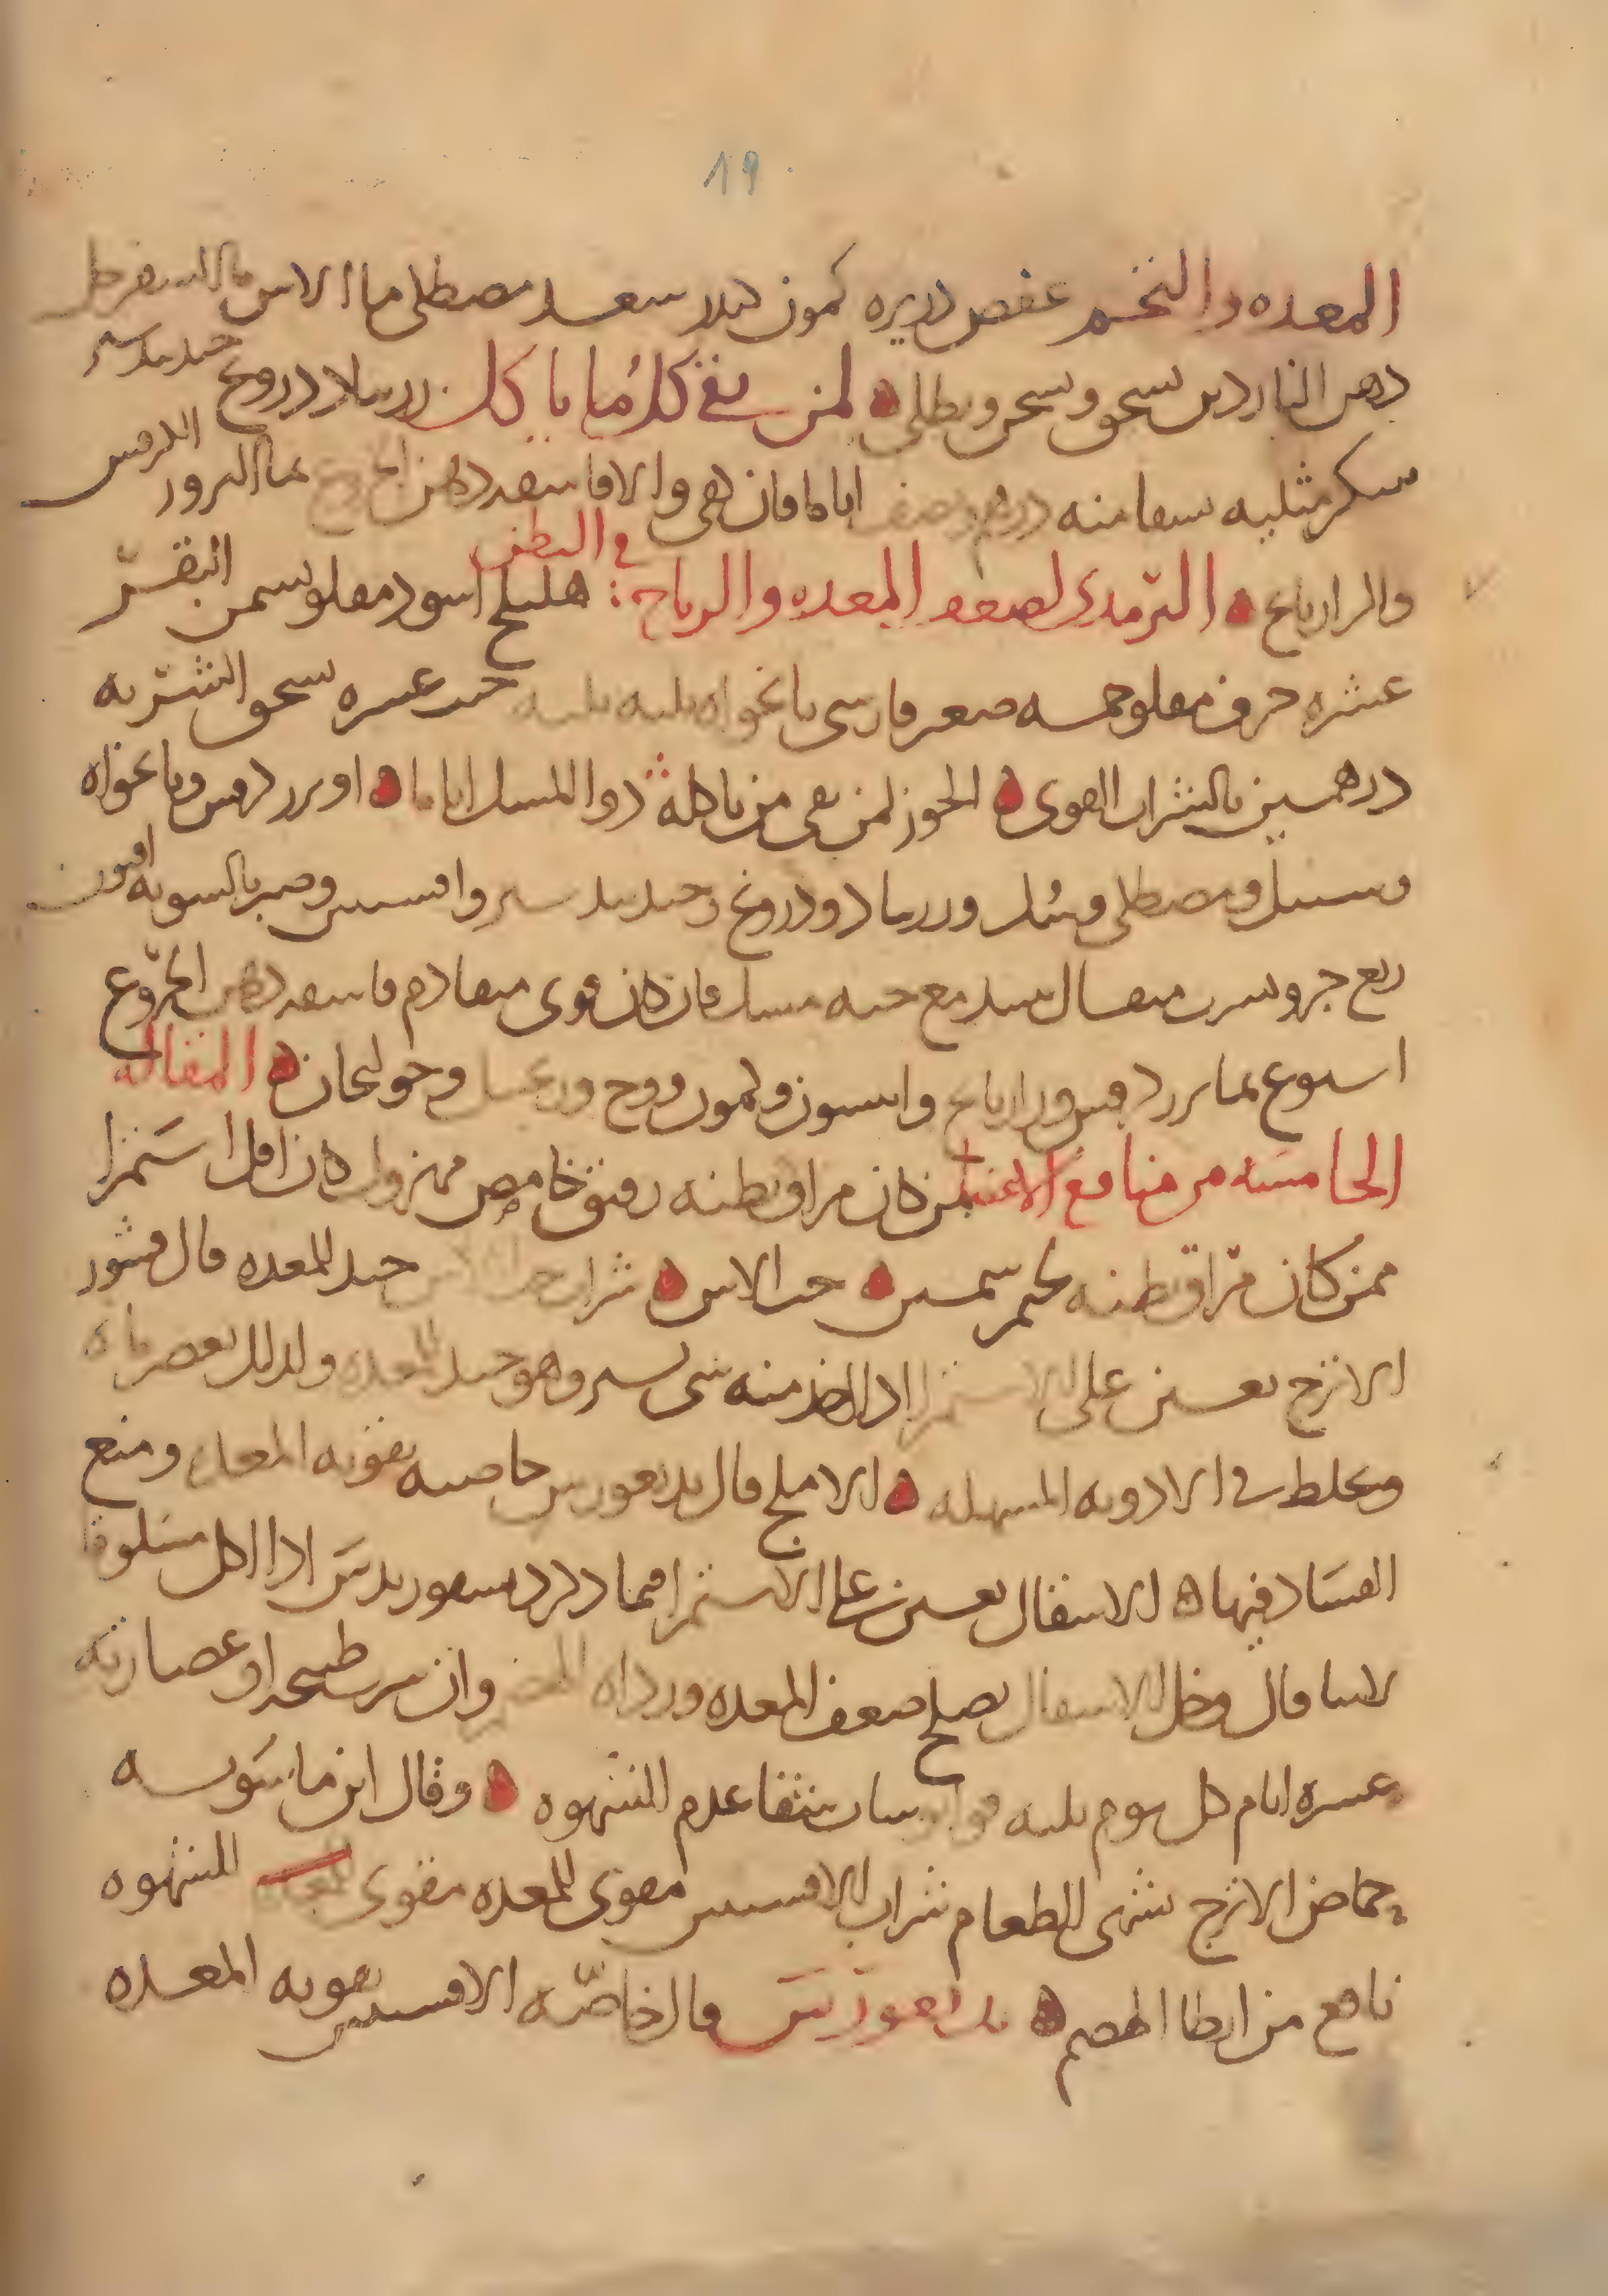 19
المعده والتخم عفص دريره كمون كندر سعد مصطكى ما الاس ما السفرجل
دهن الناردين يسحق ويسخن ويطلى لمن يقي كلما ياكل زرنباد درونج جندبيدستر
سكر مثليه يسقا منه درهم ونصف اياما فان نقي والا فاسقه دهن الخروع بما البزور الكرفس
والرازيانج الترمدى لضعف المعده والرياح في البطن هليلج اسود مقلو بسمن البقر
عشره حرف مقلو خمسه صعتر فارسى نانخواه ثلثه ثلثه خبث عشره يسحق الشربه
درهمين بالشراب القوى الخوز لمن يقى من ياكله دوا المسك اياما او بزر كرفس ونانخواه
وسنبل ومصطكى وسك وزرنباد ودرونج وجندبيدستر وافسنتين وصبر بالسويه افيون
ربع جزو يشرب مثقال نبيد مع حبه مسك فان كان قوى متقادم فاسقه دهن الخروع
اسبوع بما بزر كرفس ورازيانج وانيسون وكمون ووج وزنجبيل وخولنجان المقاله
الخامسه من منافع الاعضا من كان مراق بطنه رقيق خامص مهزول كان اقل استمرا
ممن كان مراق بطنه لحيم سمين حب الاس شراب حب الاس جيد للمعده قال قشور
الاترج يعين على الاستمرا ادا اخد منه شى يسير وهو جيد للمعده ولدلك يعصر ماه
ويخلط في الادويه المسهله الاملج قال بديغورس خاصيه تقويه المعده ومنع
الفساد فيها الاسقال يعين على الاستمرا فيما دكر ديسقوريدس ادا اكل مسلوقا
لاسا قال وخل الاسقال يصلح ضعف المعده ورداه الهضم وان شرب طبيخه او عصارته
عشره ايام كل يوم ثلثه قوانوسات شفا عدم الشهوه وقال ابن ماسويه
حماض الاترج يشهى الطعام شراب الافسنتين مقوى للمعده مقوى للشهوه
نافع من ابطا الهضم بديغورس قال خاصه الافسنتين تقويه المعده